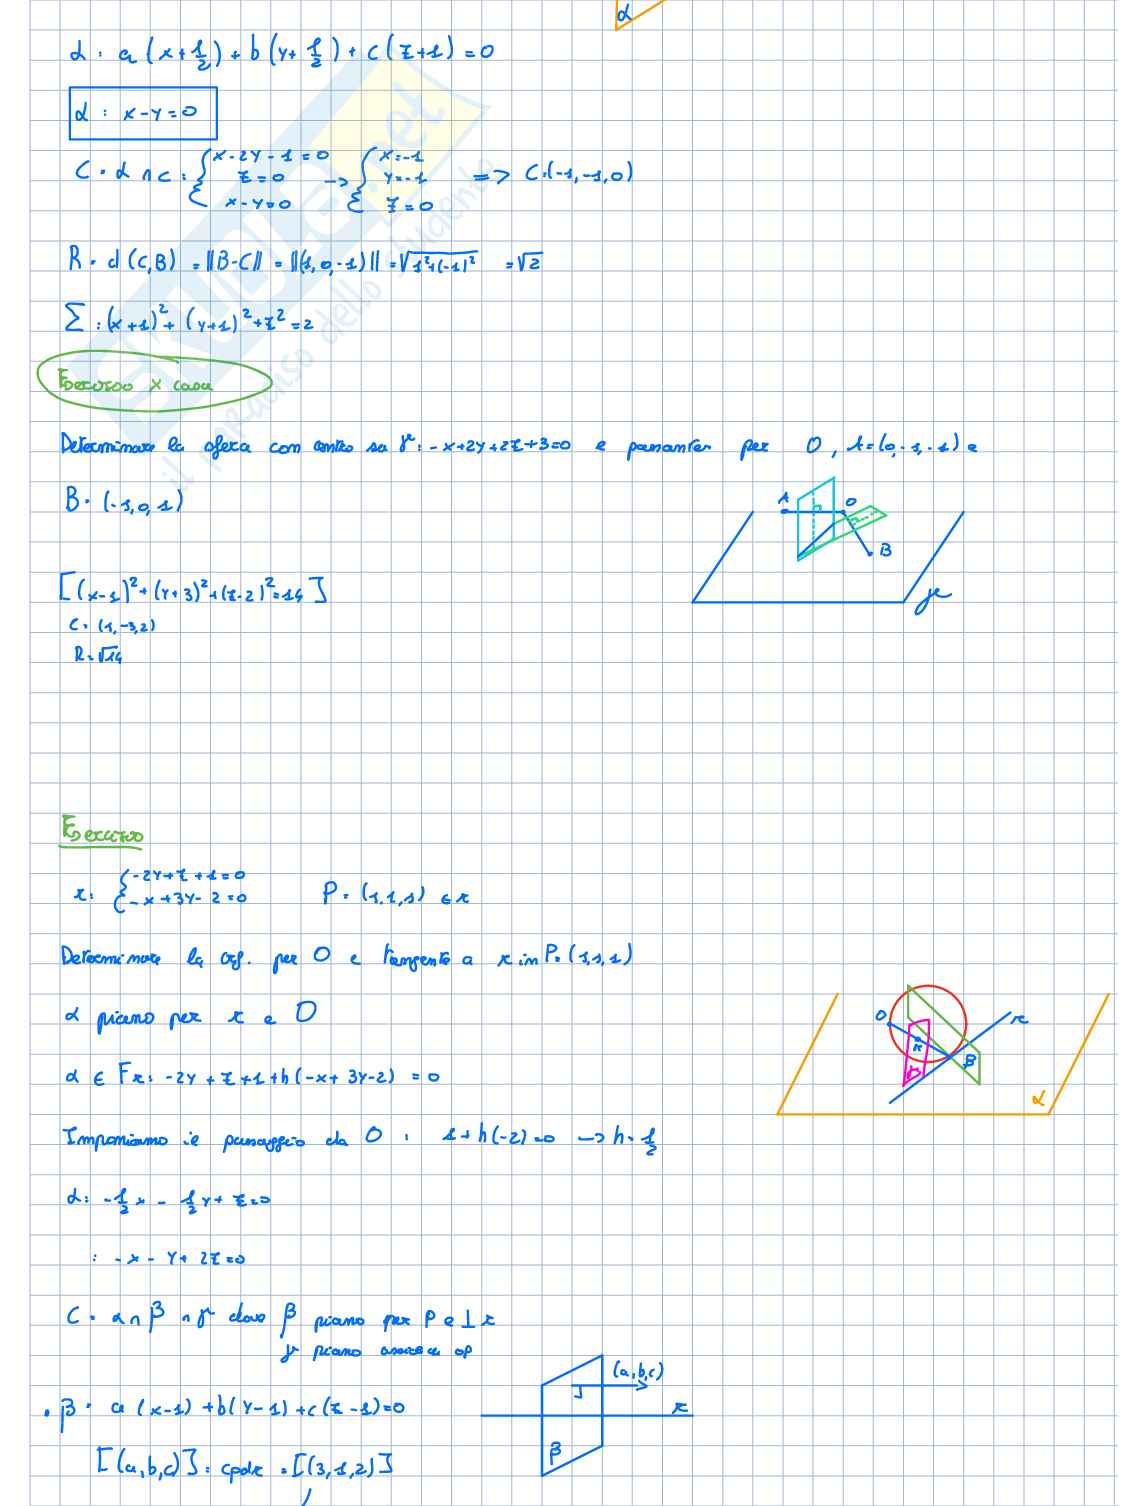 α
α : a (x+1/2) + b (y+1/2) + c (z+1) = 0
α : x-y=0
C = α ∩ c : { x-2y-1=0 z=0 x-y=0 → { x=-1 y=-1 z=0 => C=(-1,-1,0)
R = d (C,B) = ||B-C|| = ||(1,0,-1)|| = √1²+(-1)² = √2
Σ : (x+1)² + (y+1)² + z² = 2
Esercizio x casa
Determinare la sfera con centro su γ: -x+2y+2z+3=0 e passante per O, A=(0,-1,-1) e
B = (-1,0,1)
A O B γ
[(x-1)²+(y+3)²+(z-2)²=14]
C = (1,-3,2)
R = √14
Esercizio
r: { -2y+z+1=0 -x+3y-2=0 P = (1,1,1) ∈ r
Determinare la csf. per O e tangente a r in P=(1,1,1)
α piano per r e O
α ∈ Fr: -2y+z+1+h(-x+3y-2) = 0
O r β α
Imponiamo il passaggio da O : 1+h(-2)=0 → h=1/2
α: -1/2 x - 1/2 y + z=0
: -x-y+2z=0
C = α ∩ β ∩ γ dove β piano per P e ⊥ r
γ piano assiale OP
• β = a (x-1) + b(y-1) + c(z-1)=0
[(a,b,c)] = cpdr = [(3,1,2)]
(a,b,c) r β
SKUOLA.net
il paradiso dello studente